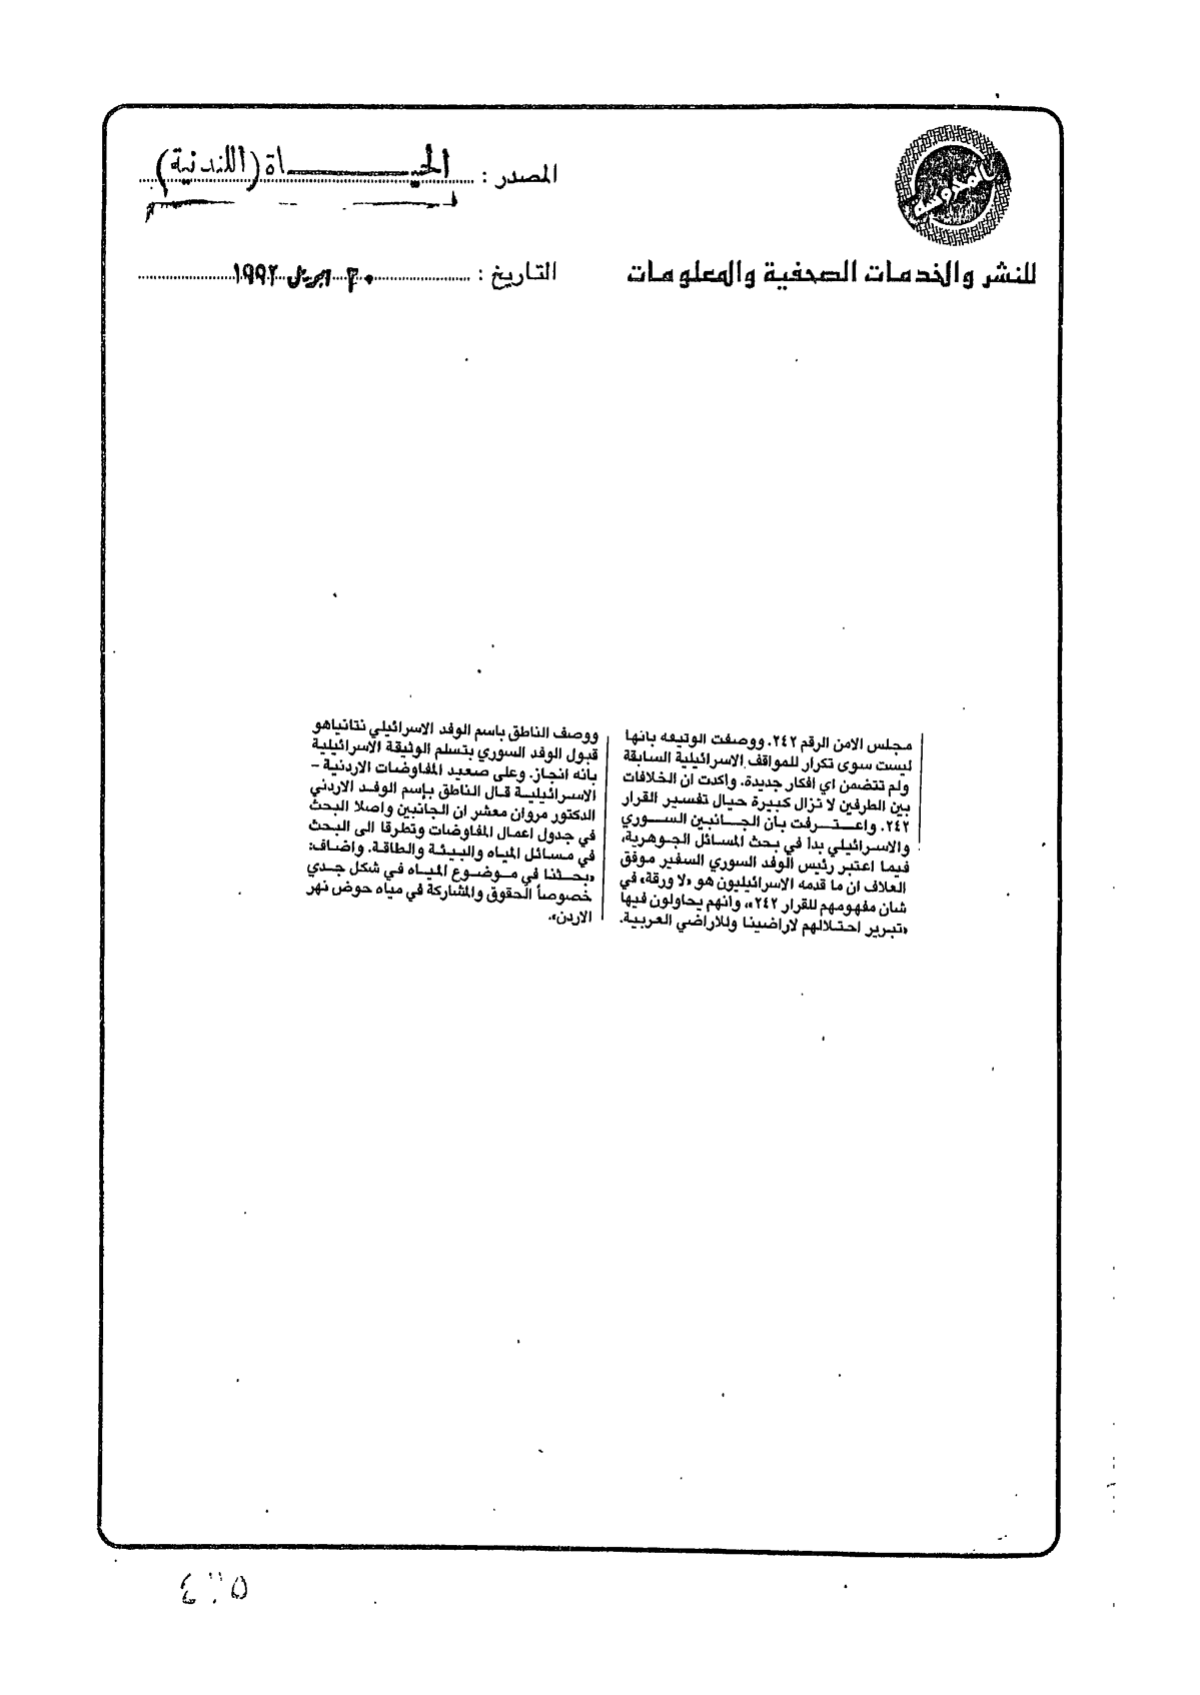 المصدر : الحيــــــاة (اللندنية)
للنشر والخدمات الصحفية والمعلومات
التاريخ : ٣٠ ابريل ١٩٩٢
مجلس الامن الرقم ٢٤٢. ووصفت الوثيقة بانها
ليست سوى تكرار للمواقف الاسرائيلية السابقة
ولم تتضمن اي افكار جديدة. واكدت ان الخلافات
بين الطرفين لا تزال كبيرة حيال تفسير القرار
٢٤٢. واعــتــرفت بأن الجــانبين الســوري
والاسرائيلي بدآ في بحث المسائل الجـوهرية،
فيما اعتبر رئيس الوفد السوري السفير موفق
العلاف ان ما قدمه الاسرائيليون هو «لا ورقة» في
شان مفهومهم للقرار ٢٤٢»، وانهم يحاولون فيها
«تبرير احتـلالهم لاراضينا وللاراضي العربية.
ووصف الناطق باسم الوفد الاسرائيلي نتانياهو
قبول الوفد السوري بتسلم الوثيقة الاسرائيلية
بانه انجاز. وعلى صعيد المفاوضات الاردنية –
الاسـرائيليـة قـال الناطق بإسم الوفـد الاردني
الدكتور مروان معشر ان الجانبين واصلا البحث
في جدول اعمال المفاوضات وتطرقا الى البحث
في مسـائل المياه والبيـئـة والطاقـة. واضـاف:
«بحـثنا في مـوضـوع الميـاه في شكل جـدي
خصوصاً الحقوق والمشاركة في مياه حوض نهر
الاردن».